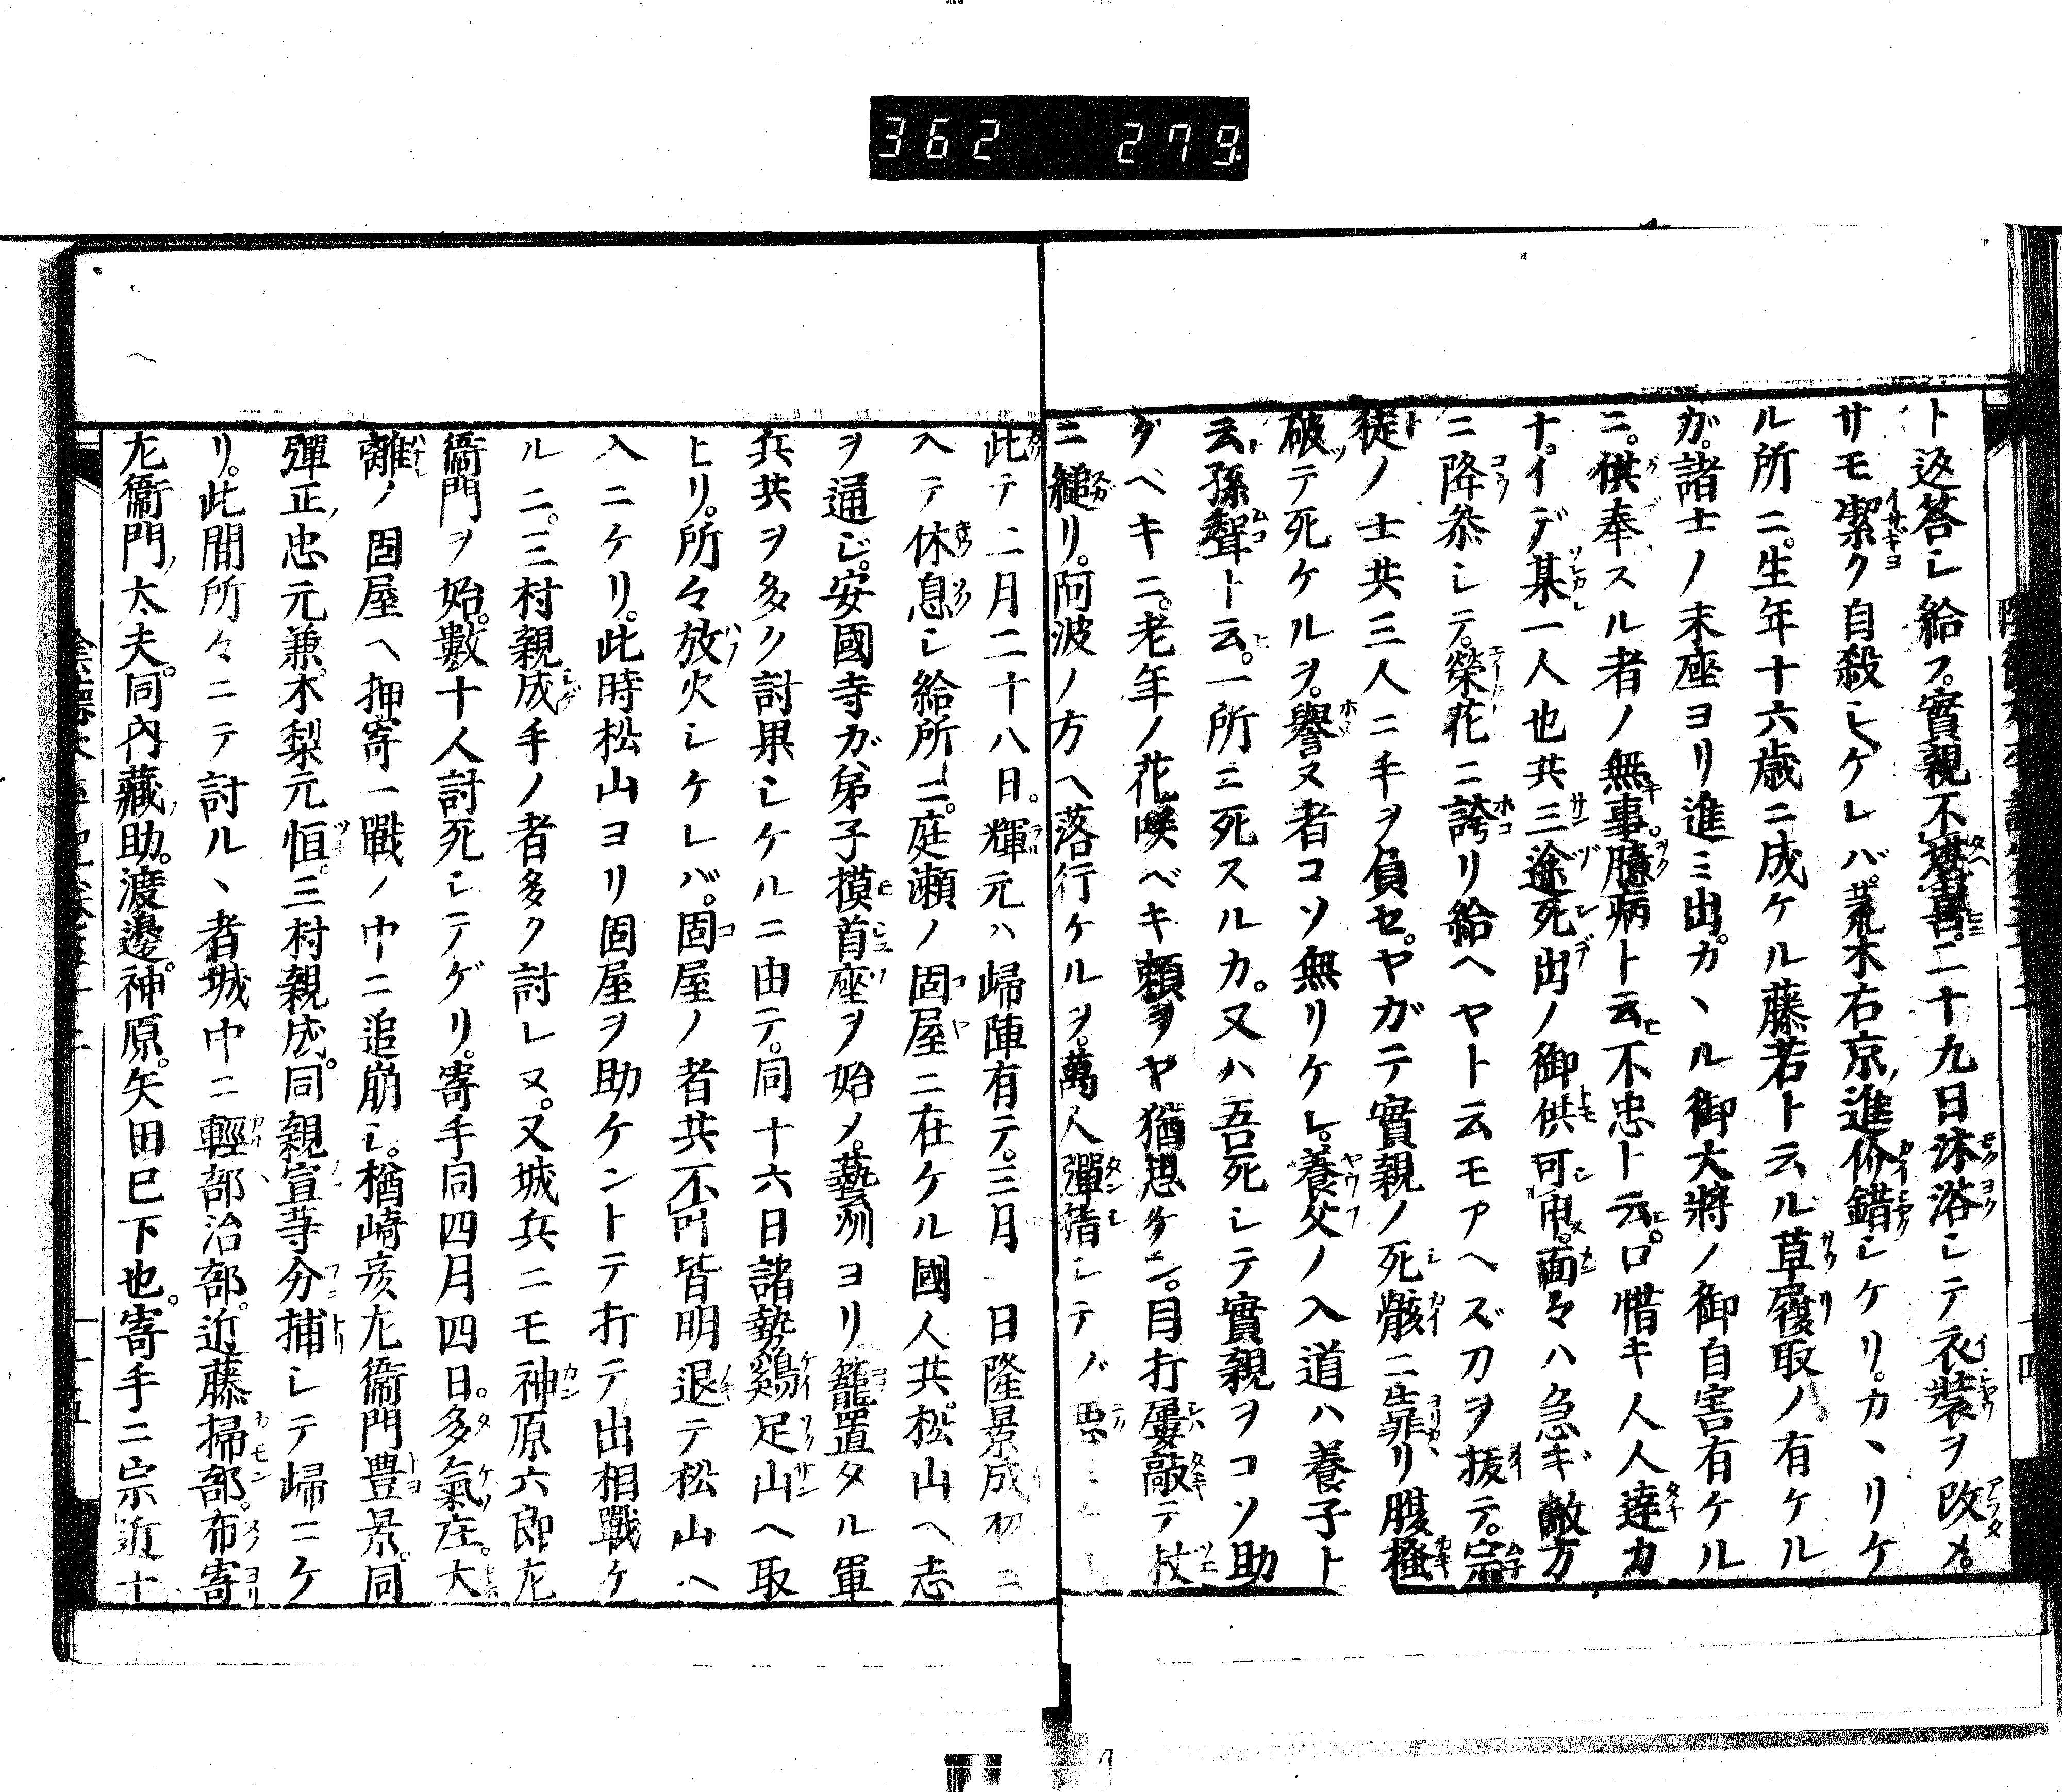 362 279
ト返答シ給フ。實親不堪喜。二十九日沐浴シテ衣裝ヲ改メ。
サモ潔ク自殺シケレバ。荒木右京進介錯シケリ。カヽリケ
ル所ニ。生年十六歳ニ成ケル藤若ト云ル草履取ノ有ケル
ガ。諸士ノ末座ヨリ進ミ出。カヽル御大將ノ御自害有ケル
ニ。供奉スル者ノ無事。臆病ト云不忠ト云。口惜キ人人達カ
ナ。イデ某一人也共三途死出ノ御供可申。面々ハ急ギ敵方
ニ降参シテ。榮花ニ誇リ給ヘヤト云モアヘズ刀ヲ抜テ。宗
徒ノ士共三人ニ手ヲ負セ。ヤガテ實親ノ死骸ニ靠リ腹掻
破テ死ケルヲ。譽ヌ者コソ無リケレ。養父ノ入道ハ養子ト
云孫聟ト云。一所ニ死スルカ。又ハ吾死シテ實親ヲコソ助
グベキニ。老年ノ花咲ベキ頼ヲヤ猶思ケン。目打屡敲テ杖
ニ縋リ。阿波ノ方ヘ落行ケルヲ。萬人彈指シテ
此テ二月二十八日。輝元ハ歸陣有テ。三月一日隆景成羽ニ
入テ休息シ給所ニ。庭瀬ノ固屋ニ在ケル國人共。松山ヘ志
ヲ通ジ。安國寺ガ弟子摸首座ヲ始メ。藝州ヨリ籠置タル軍
兵共ヲ多ク討果シケルニ由テ。同十六日諸勢鷄足山ヘ取
上リ。所々放火シケレバ。固屋ノ者共不叶皆明退テ松山ヘ
入ニケリ。此時松山ヨリ固屋ヲ助ケントテ打テ出相戰ケ
ル二。三村親成手ノ者多ク討レヌ。又城兵ニモ神原六郎左
衞門ヲ始。數十人討死シテゲリ。寄手同四月四日。多氣庄。大
離ノ固屋ヘ押寄一戰ノ中ニ追崩シ。楢崎彦左衞門豊景。同
彈正忠元兼。木梨元恒。三村親成。同親宣等分捕シテ歸ニケ
リ。此間所々ニテ討ルヽ者城中ニ輕部治部。近藤掃部。布寄
左衞門太夫。同内藏助。渡邊。神原。矢田巳下也。寄手ニ宗近十